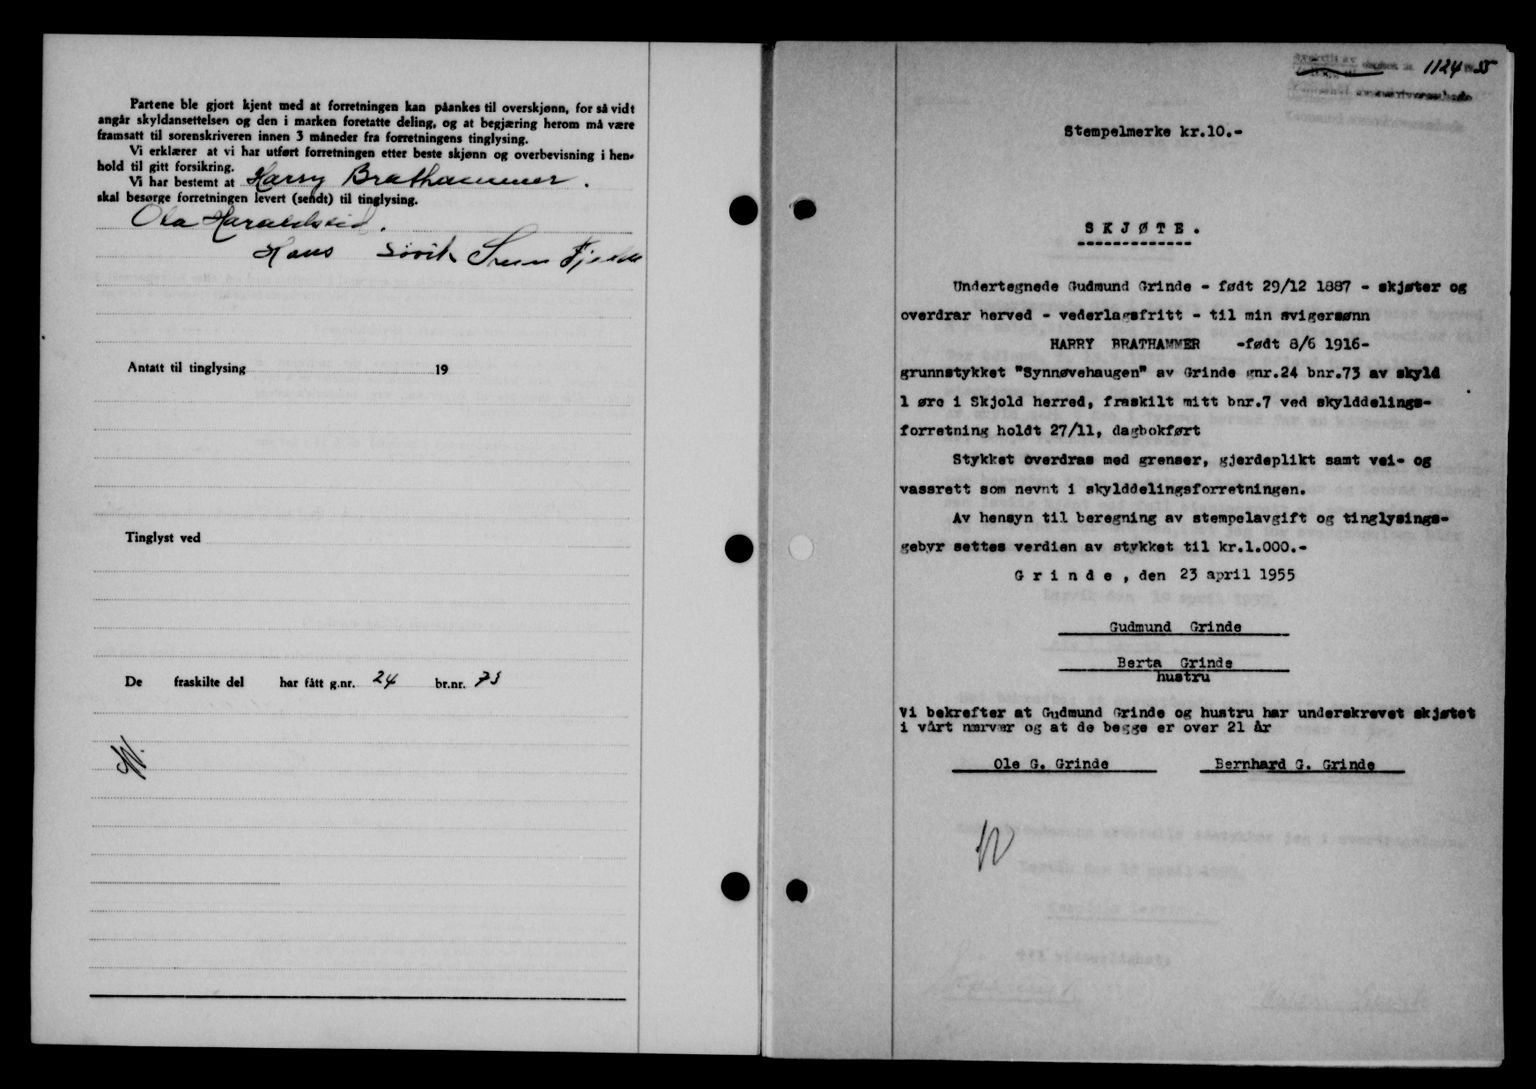 Partene ble gjort kjent med at forretningen kan påankes til overskjønn, for så vidt
angår skyldansettelsen og den i marken foretatte deling, og at begjæring herom må være
framsatt til sorenskriveren innen 3 måneder fra forretningens tinglysing.
Vi erklærer at vi har utført forretningen etter beste skjønn og overbevisning i hen-
hold til gitt forsikring.
Vi har bestemt at Harry Brathammer.
skal besørge forretningen levert (sendt) til tinglysing.
Ola Haraldseid.
Hans Søvik Sven Fjelde
Antatt til tinglysing 19
Tinglyst ved
De fraskilte del har fått g.nr. 24 br.nr. 73
1124 55
Stempelmerke kr.10.-
SKJØTE.
Undertegnede Gudmund Grinde - født 29/12 1887 - skjøter og
overdrar herved - vederlagsfritt - til min svigersønn
HARRY BRATHAMMER -født 8/6 1916-
grunnstykket "Synnøvehaugen" av Grinde gnr.24 bnr.73 av skyld
1 øre i Skjold herred, fraskilt mitt bnr.7 ved skylddelings-
forretning holdt 27/11, dagbokført
Stykket overdras med grenser, gjerdeplikt samt vei- og
vassrett som nevnt i skylddelingsforretningen.
Av hensyn til beregning av stempelavgift og tinglysings-
gebyr settes verdien av stykket til kr.1.000.-
Grinde, den 23 april 1955
Gudmund Grinde
Berta Grinde
hustru
Vi bekrefter at Gudmund Grinde og hustru har underskrevet skjøtet
i vårt nærvær og at de begge er over 21 år
Ole G. Grinde Bernhard G. Grinde